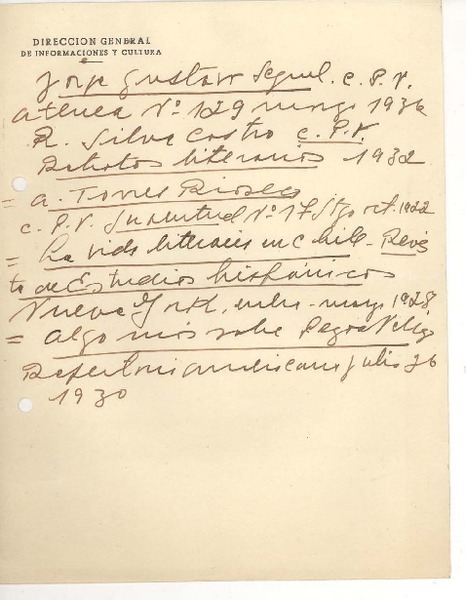 DIRECCION GENERAL
DE INFORMACIONES Y CULTURA
Jorge Gustavo Segul. c. P. V.
Atenea Nº 129 marzo 1936
R. Silva Castro c. P. V.
Retratos literarios 1932
= A. Torres Rioseco
c. P. V. Juventud Nº 17 Stgo oct. 1922
= La vida literaria en Chile - Revis
ta de Estudios hispánicos
Nueva York, enero - marzo 1928
= Algo más sobre Pezoa Véliz
Repertorio americano julio 26
1930